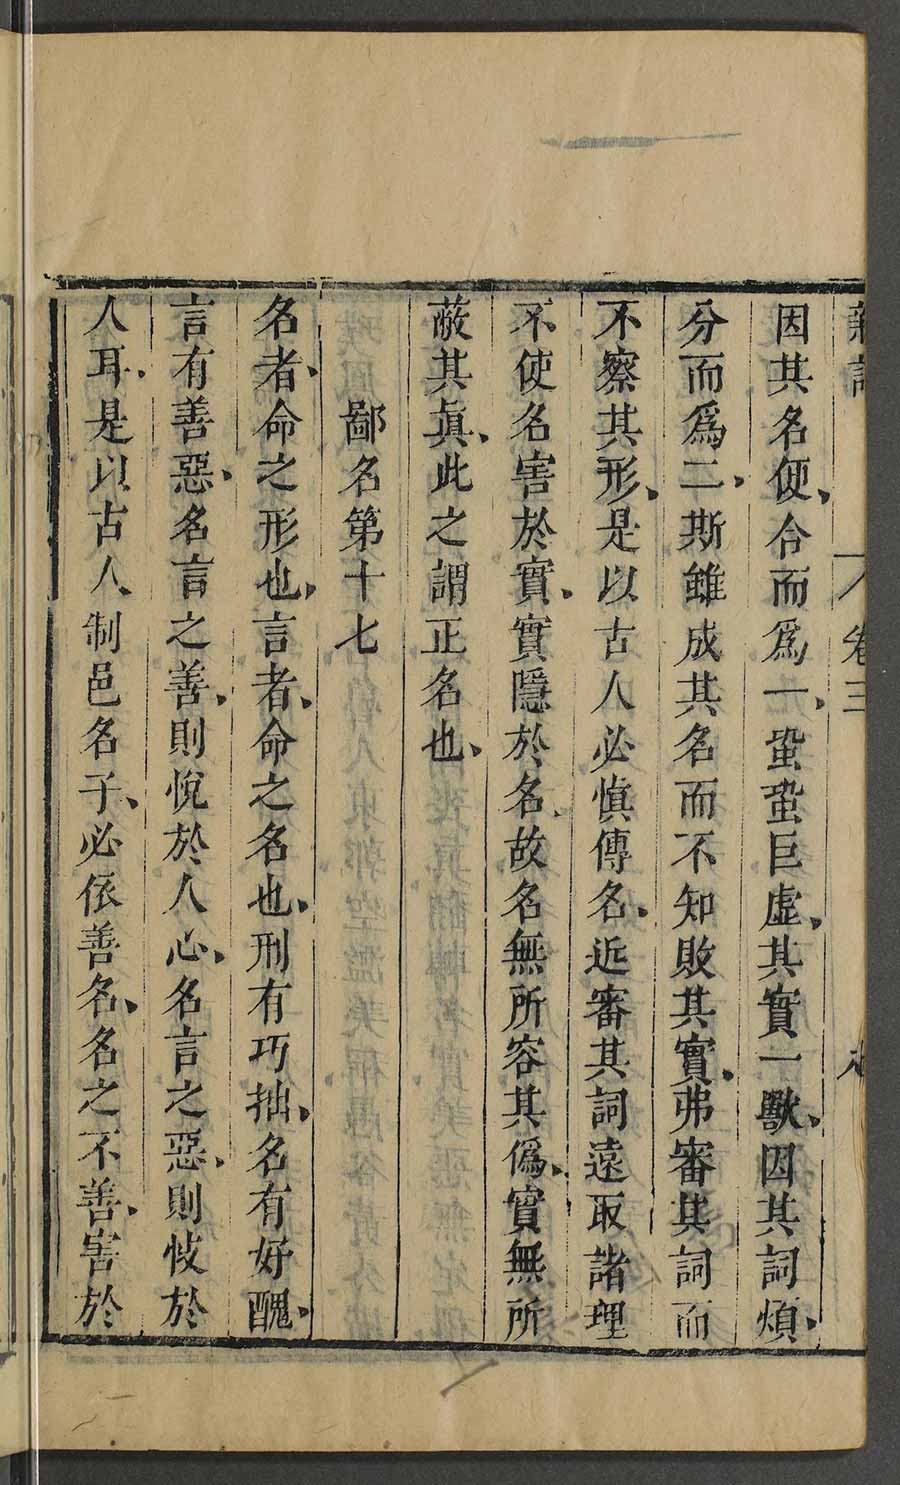 新論 卷三 九
因其名便、合而爲一、蛩蛩巨虛、其實一獸、因其詞煩、
分而爲二、斯雖成其名而不知敗其實、弗審其詞而
不察其形、是以古人必慎傳名、近審其詞遠取諸理
不使名害於實、實隱於名、故名無所容其僞、實無所
蔽其眞、此之謂正名也、
鄙名第十七
名者、命之形也、言者、命之名也、刑有巧拙、名有好醜、
言有善惡、名言之善、則悅於人心、名言之惡、則忮於
人耳、是以古人制邑名子、必依善名、名之不善、害於